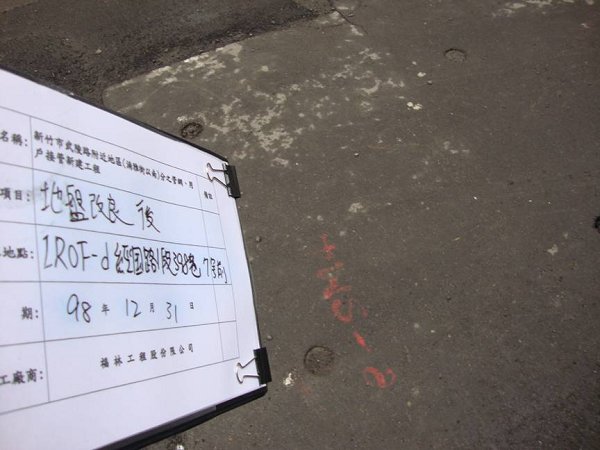 名稱: 新竹市武陵路附近地區(湳雅街以南)分支管網、用
戶接管新建工程
備註
項目: 地盤改良 後
地點: ZROF-d 經國路1段398巷 7號前
期: 98 年 12 月 31 日
工廠商: 福林工程股份有限公司